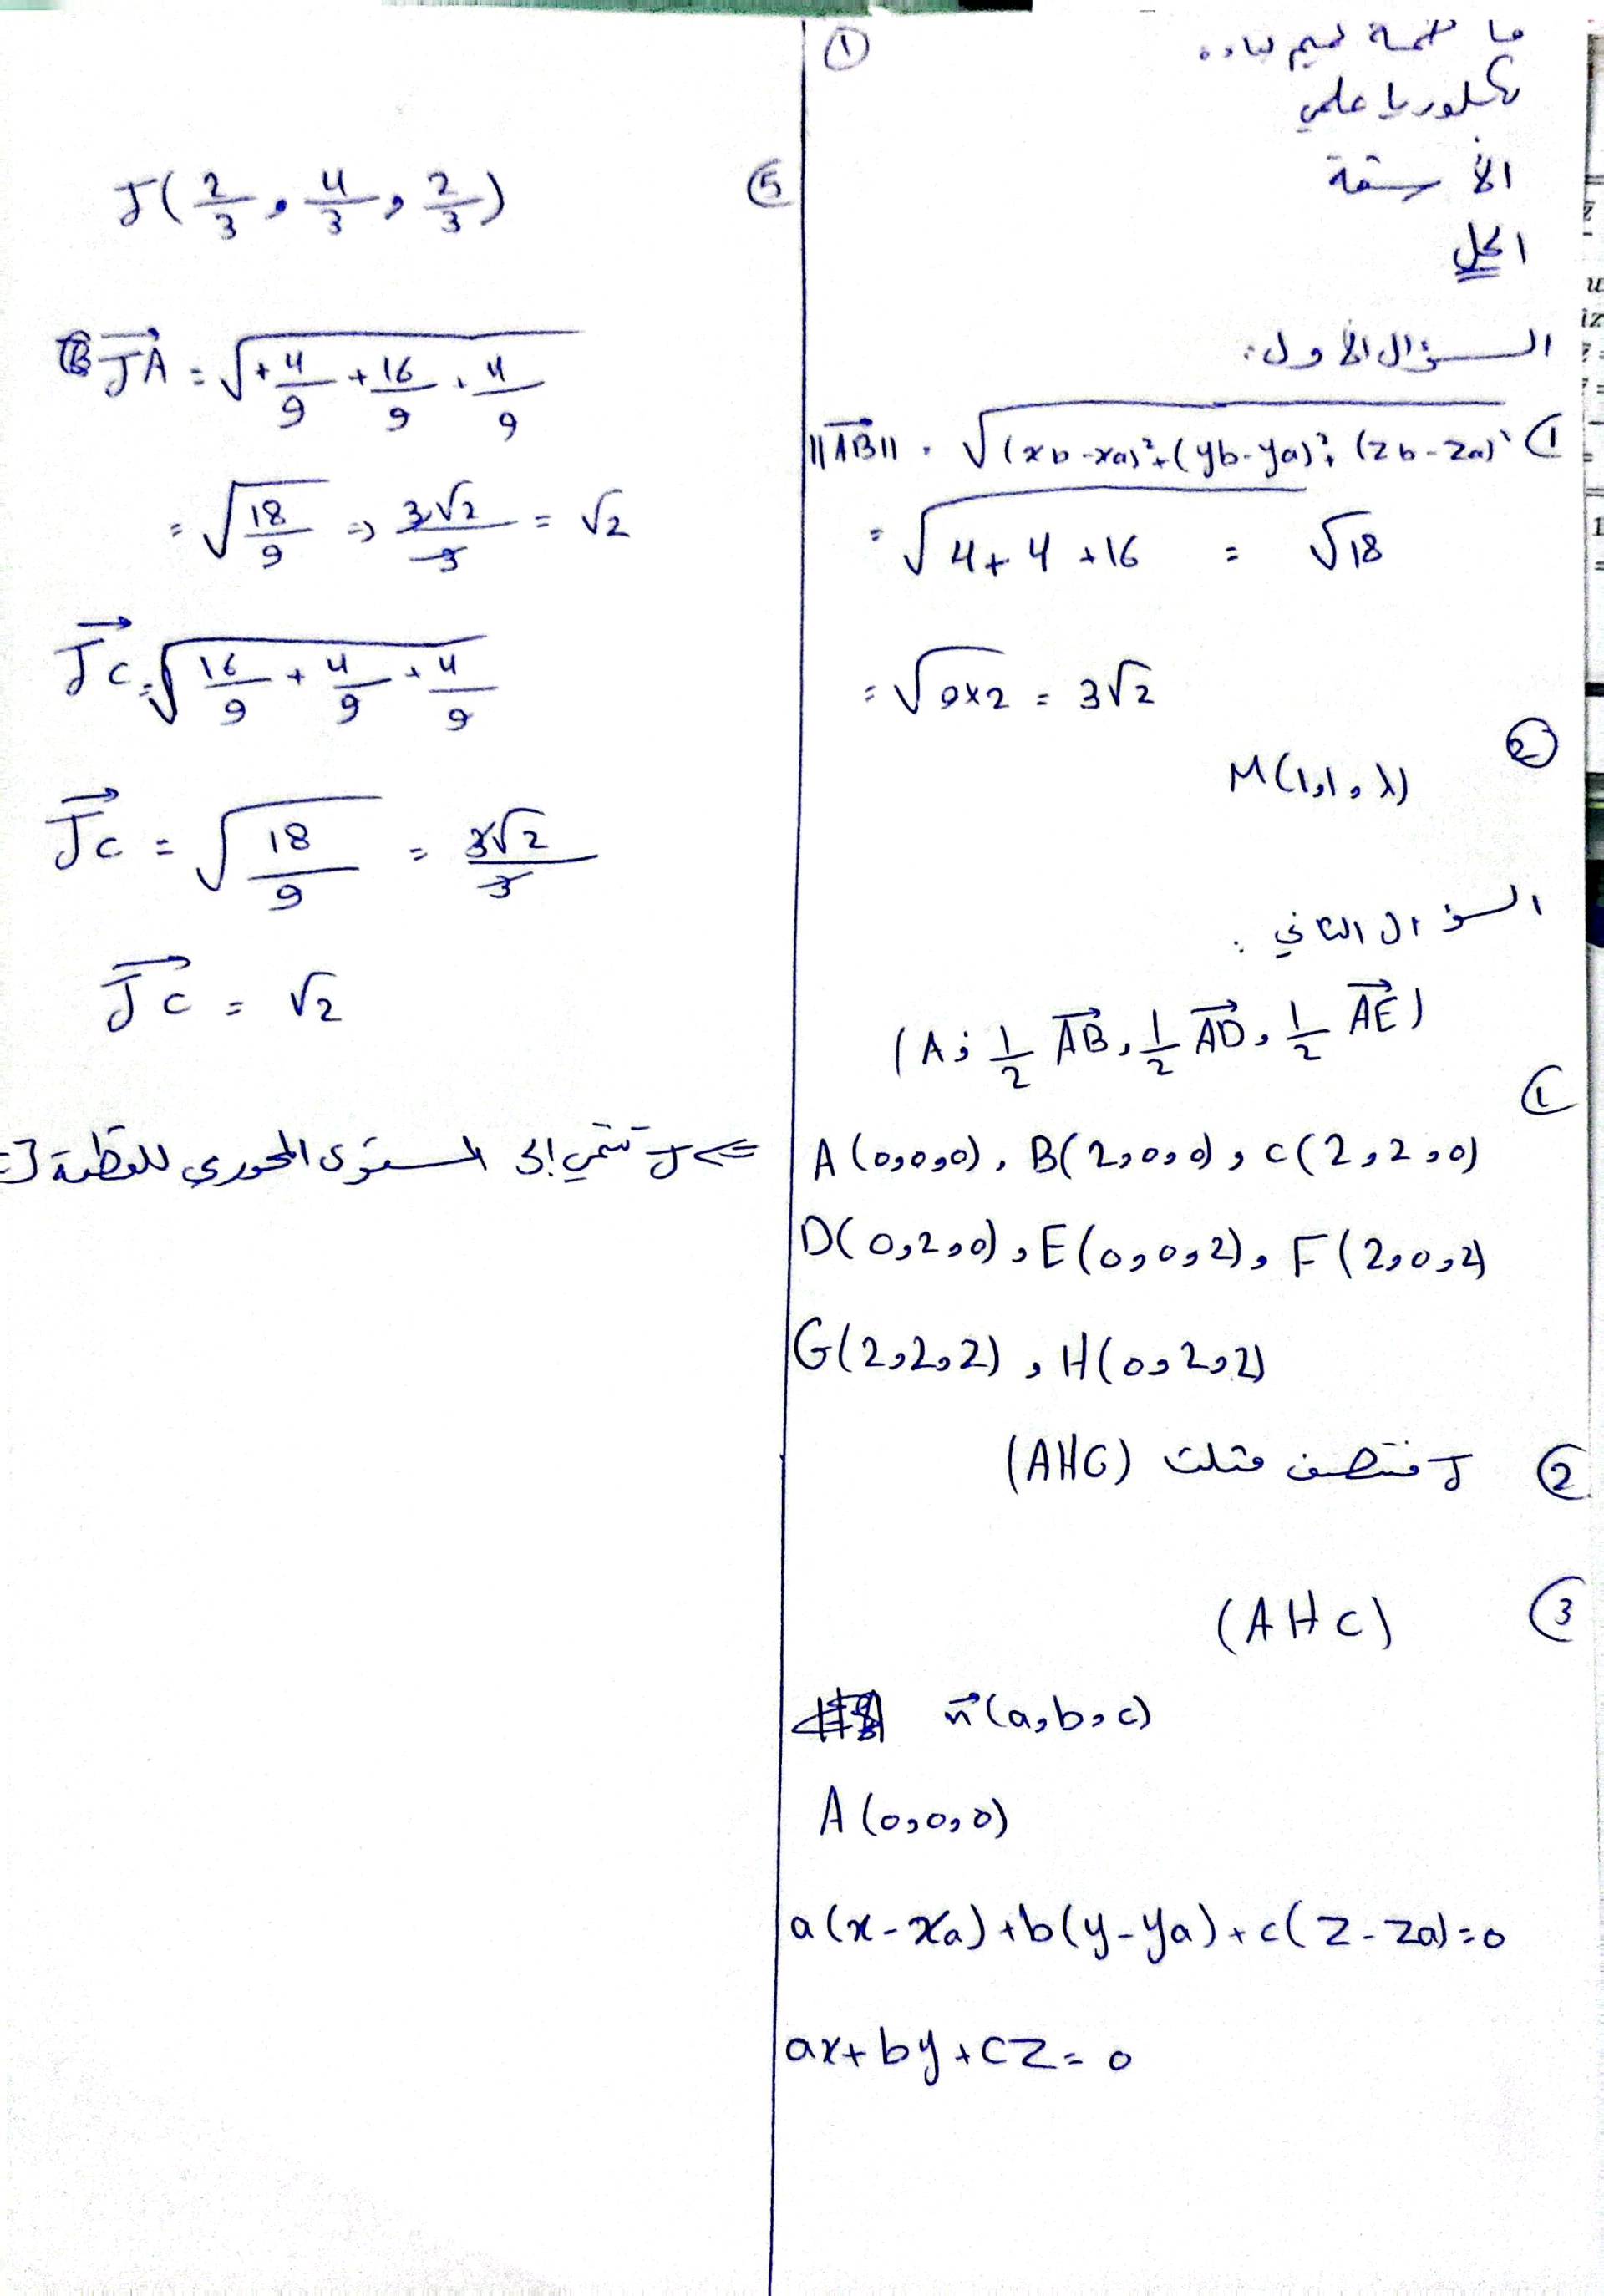 ①
فاطمة نسيم
بكلوريا علمي
الأسقة
الحل
السؤال الأول:
① ||AB|| = √(xb-xa)²+(yb-ya)²+(zb-za)²
= √4+4+16 = √18
= √9×2 = 3√2
② M(1,1,λ)
السؤال الثاني:
(A; 1/2 AB, 1/2 AD, 1/2 AE)
①
A(0,0,0), B(2,0,0), C(2,2,0)
D(0,2,0), E(0,0,2), F(2,0,2)
G(2,2,2), H(0,2,2)
② J منتصف مثلث (AHG)
③ (AHC)
n(a,b,c)
A(0,0,0)
a(x-xa)+b(y-ya)+c(z-za)=0
ax+by+cz=0
⑤ J(2/3, 4/3, 2/3)
JA = √+4/9+16/9+4/9
= √18/9 ⇒ 3√2/3 = √2
JC = √16/9+4/9+4/9
JC = √18/9 = 3√2/3
JC = √2
⇐ J تنتمي إلى المستوى المحوري للقطعة